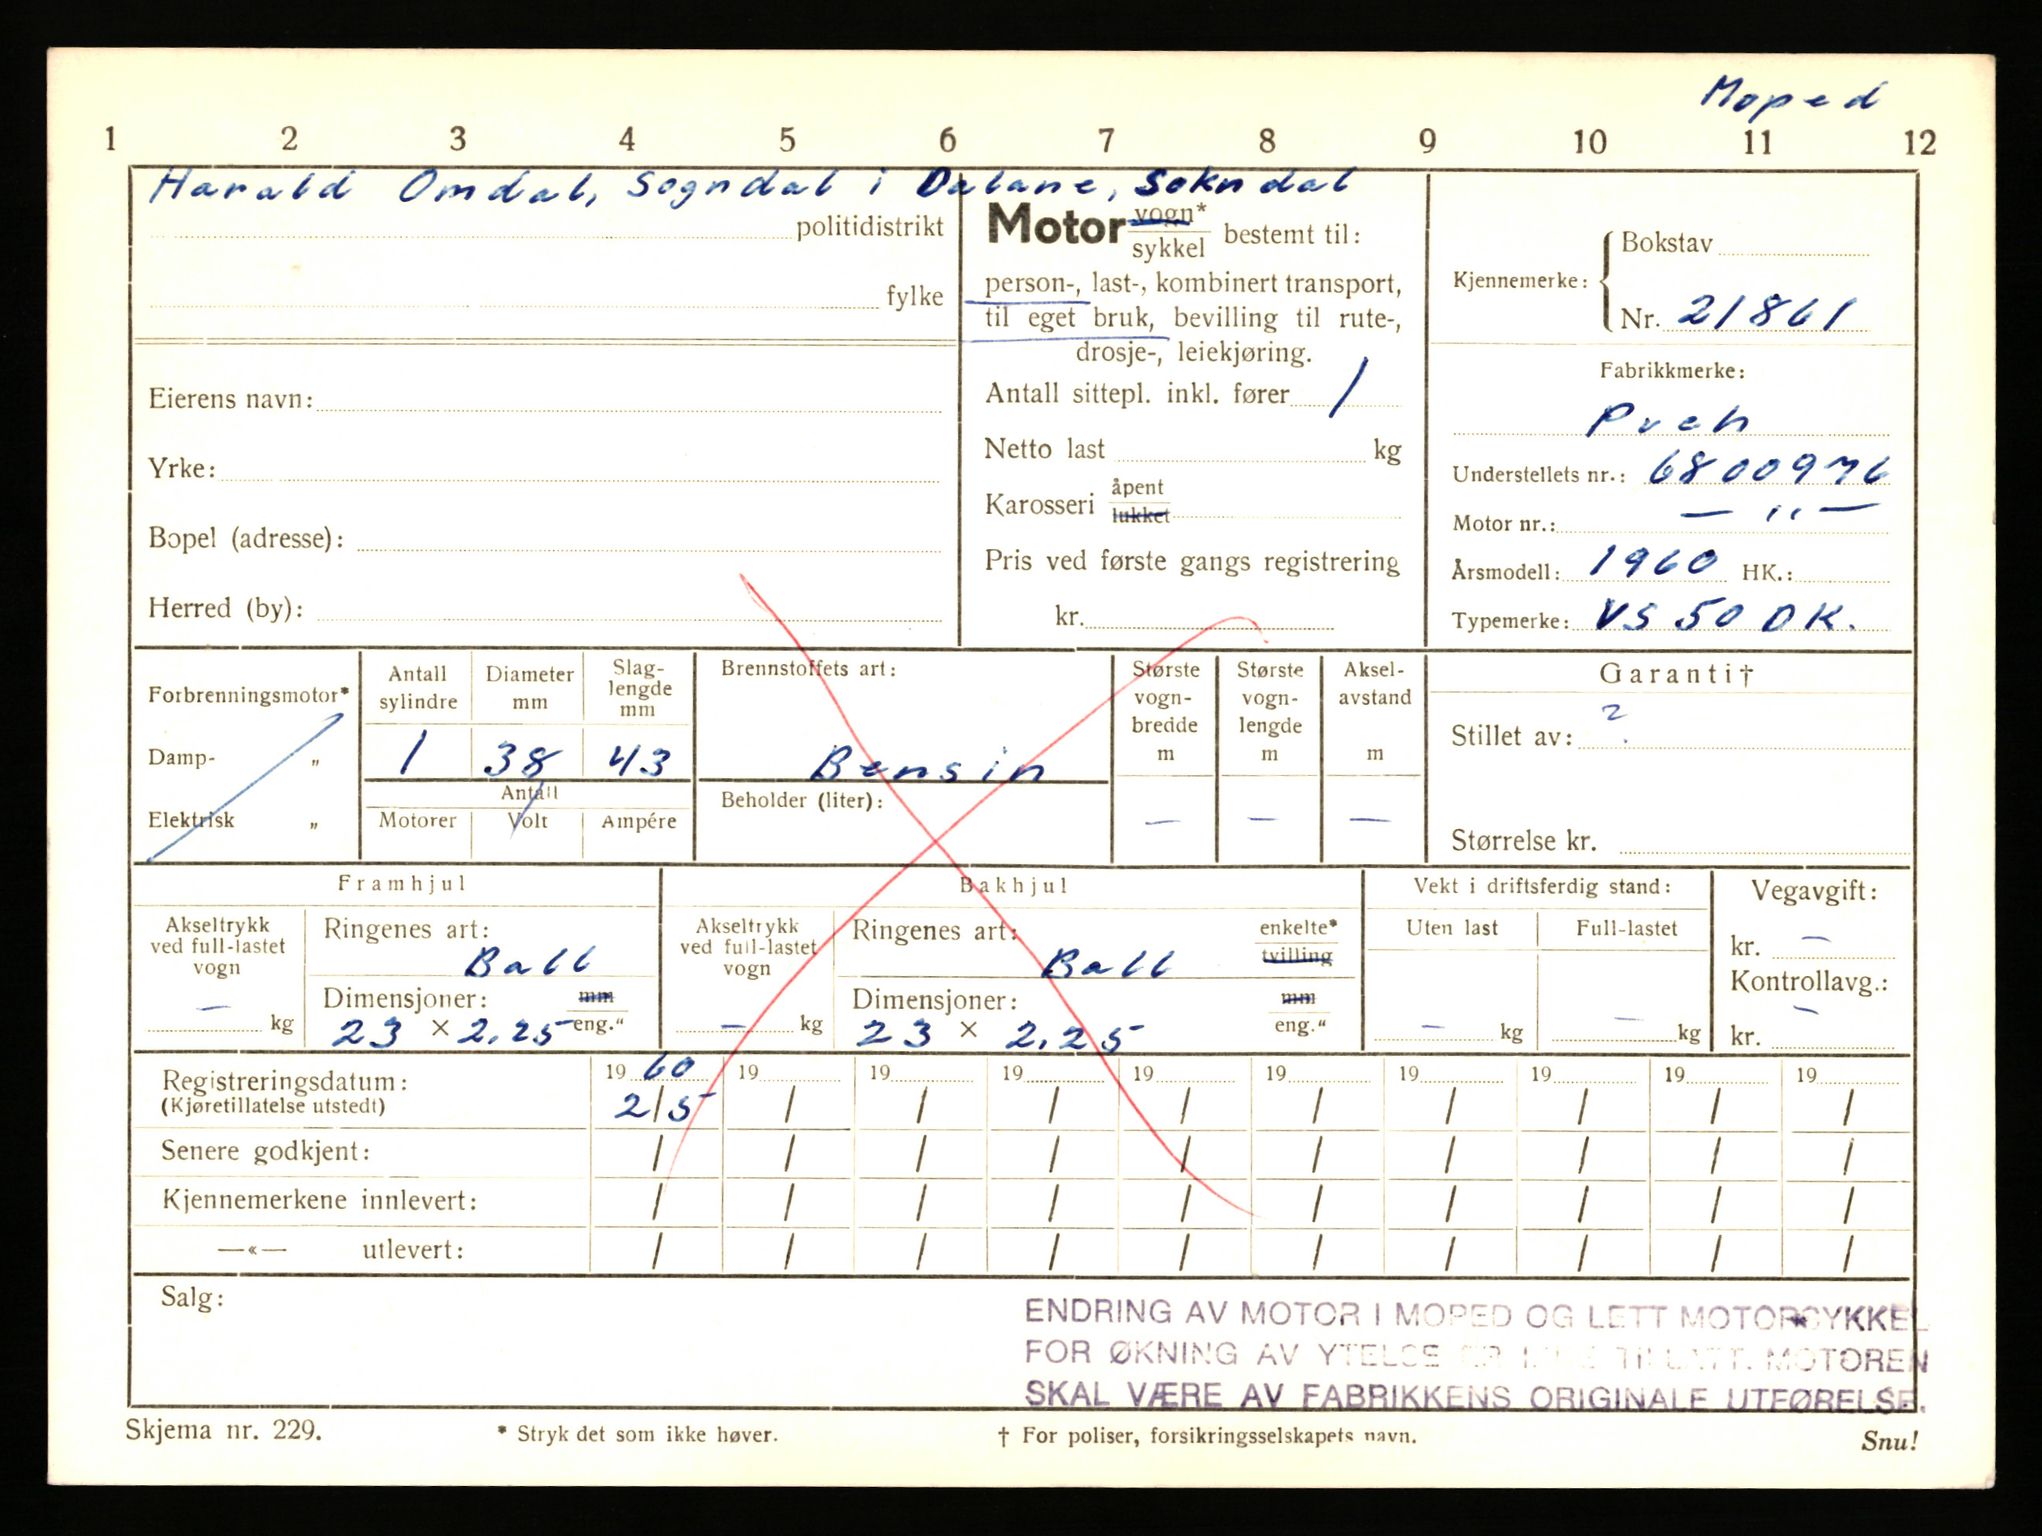 Moped
1 2 3 4 5 6 7 8 9 10 11 12
Harald Omdal, Sogndal i Dalane, Sokndal
politidistrikt
fylke
Eierens navn:
Yrke:
Bopel (adresse):
Herred (by):
Motor vogn* sykkel bestemt til:
person-, last-, kombinert transport,
til eget bruk, bevilling til rute-,
drosje-, leiekjøring.
Antall sittepl. inkl. fører 1
Netto last kg
Karosseri åpent lukket
Pris ved første gangs registrering
kr.
Kjennemerke:
Bokstav
Nr. 21861
Fabrikkmerke:
Puch
Understellets nr.: 6800976
Motor nr.: — ,, —
Årsmodell: 1960 HK.:
Typemerke: VS 50 DK.
Forbrenningsmotor*
Damp- „
Elektrisk „
Antall sylindre
Diameter mm
Slag-
lengde
mm
1 38 43
Antall
Motorer Volt Ampére
Brennstoffets art:
Bensin
Beholder (liter):
Største
vogn-
bredde
m
—
Største
vogn-
lengde
m
—
Aksel-
avstand
m
—
Garanti†
Stillet av: ?
Størrelse kr.
Framhjul
Akseltrykk
ved full-lastet
vogn
— kg
Ringenes art:
Ball
Dimensjoner: mm
23 × 2.25 eng."
Bakhjul
Akseltrykk
ved full-lastet
vogn
— kg
Ringenes art: enkelte*
Ball tvilling
Dimensjoner: mm
23 × 2.25 eng."
Vekt i driftsferdig stand:
Uten last Full-lastet
— kg — kg
Vegavgift:
kr. —
Kontrollavg.:
kr. —
Registreringsdatum: 19 60 19 19 19 19 19 19 19 19 19
(Kjøretillatelse utstedt) 2/5 / / / / / / / / /
Senere godkjent: / / / / / / / / / /
Kjennemerkene innlevert: / / / / / / / / / /
—«— utlevert: / / / / / / / / / /
Salg:
ENDRING AV MOTOR I MOPED OG LETT MOTORSYKKEL
FOR ØKNING AV YTELSE ER IKKE TILLATT. MOTOREN
SKAL VÆRE AV FABRIKKENS ORIGINALE UTFØRELSE.
Skjema nr. 229. * Stryk det som ikke høver. † For poliser, forsikringsselskapets navn. Snu!